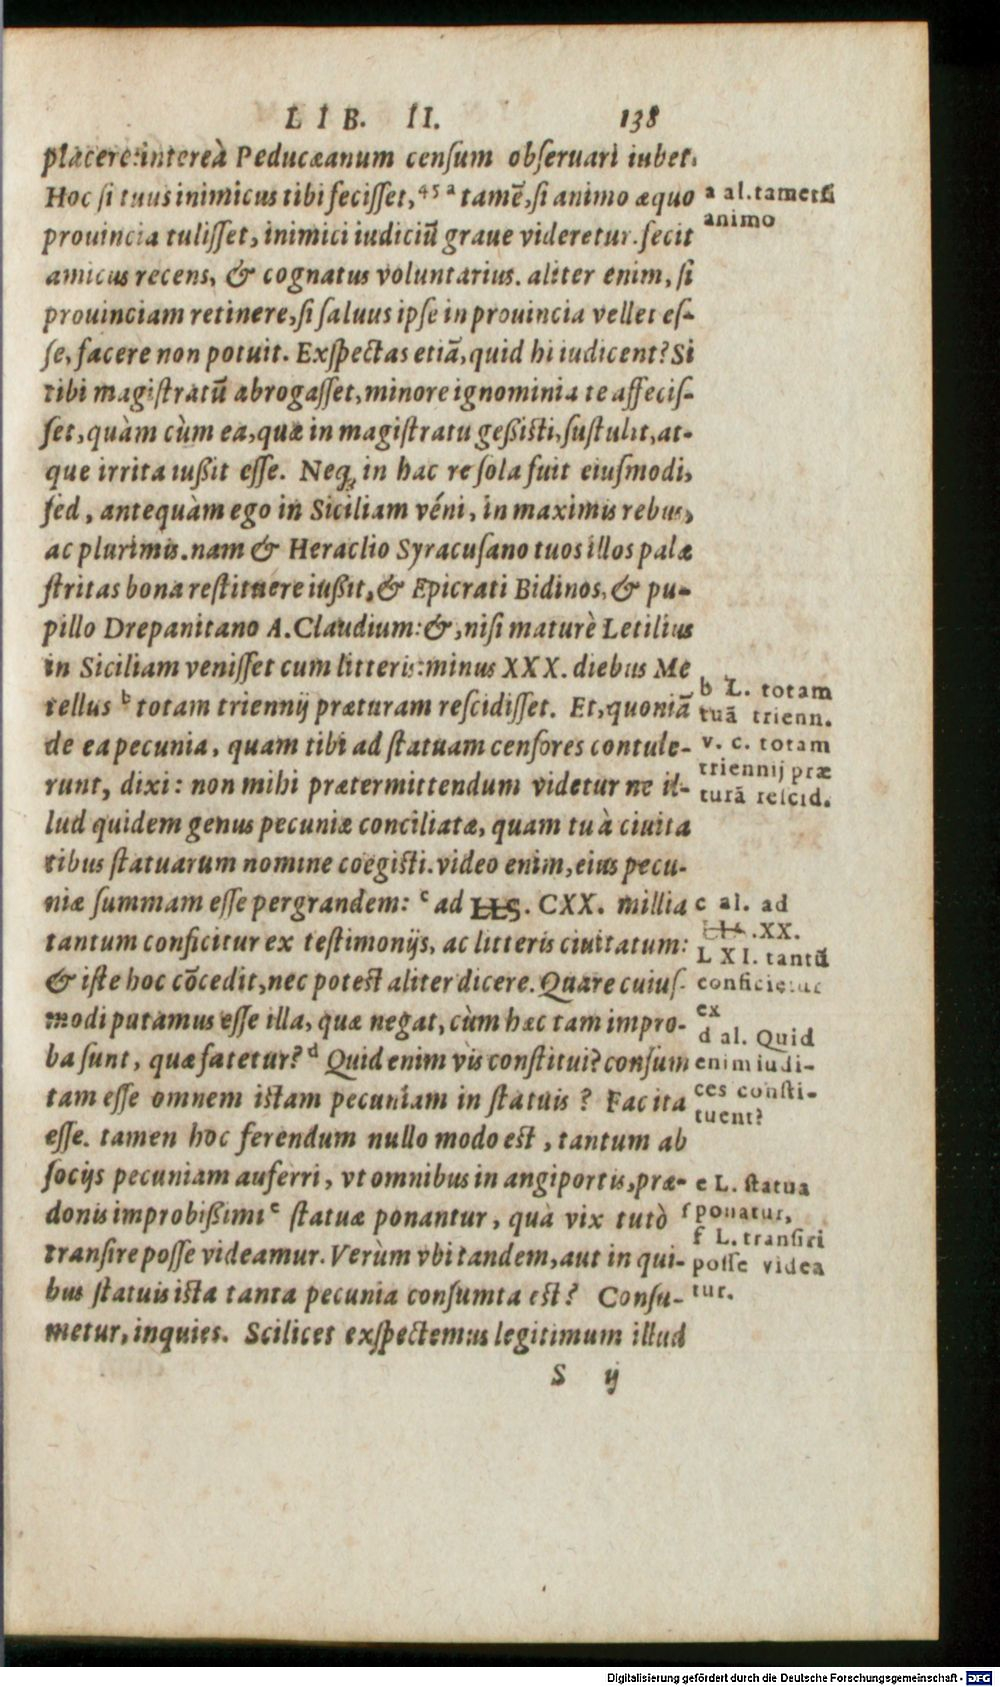 LIB. II. 138
placere: intereà Peducæanum censum obseruari iubet.
Hoc si tuus inimicus tibi fecisset, 45 a tamē, si animo æquo
prouincia tulisset, inimici iudiciū graue videretur. fecit
amicus recens, & cognatus voluntarius. aliter enim, si
prouinciam retinere, si saluus ipse in prouincia vellet es-
se, facere non potuit. Exspectas etiā, quid hi iudicent? Si
tibi magistratū abrogasset, minore ignominia te affecis-
set, quàm cùm ea, quæ in magistratu geßisti, sustulit, at-
que irrita iußit esse. Neq; in hac re sola fuit eiusmodi,
sed, antequàm ego in Siciliam véni, in maximis rebus,
ac plurimis. nam & Heraclio Syracusano tuos illos palæ
stritas bona restituere iußit, & Epicrati Bidinos, & pu-
pillo Drepanitano A. Claudium: &, nisi maturè Letilius
in Siciliam venisset cum litteris: minus XXX. diebus Me
tellus b totam triennij præturam rescidisset. Et, quoniā
de ea pecunia, quam tibi ad statuam censores contule-
runt, dixi: non mihi prætermittendum videtur ne il-
lud quidem genus pecuniæ conciliatæ, quam tu à ciuita
tibus statuarum nomine coëgisti. video enim, eius pecu-
niæ summam esse pergrandem: c ad HS. CXX. millia
tantum conficitur ex testimonijs, ac litteris ciuitatum:
& iste hoc cōcedit, nec potest aliter dicere. Quare cuius-
modi putamus esse illa, quæ negat, cùm hæc tam impro-
ba sunt, quæ fatetur? d Quid enim vis constitui? consum
tam esse omnem istam pecuniam in statuis? Fac ita
esse. tamen hoc ferendum nullo modo est, tantum ab
socijs pecuniam auferri, vt omnibus in angiportis, præ-
donis improbißimi e statuæ ponantur, quà vix tutò f
transire posse videamur. Verùm vbi tandem, aut in qui-
bus statuis ista tanta pecunia consumta est? Consu-
metur, inquies. Scilicet exspectemus legitimum illud
S ij
a al. tametsi
animo
b L. totam
tuā trienn.
v. c. totam
triennij præ
turā rescid.
c al. ad
HS. XX.
LXI. tantū
conficietur
ex
d al. Quid
enim iudi-
ces consti-
tuent?
e L. statua
ponatur,
f L. transiri
posse videa
tur.
Digitalisierung gefördert durch die Deutsche Forschungsgemeinschaft - DFG